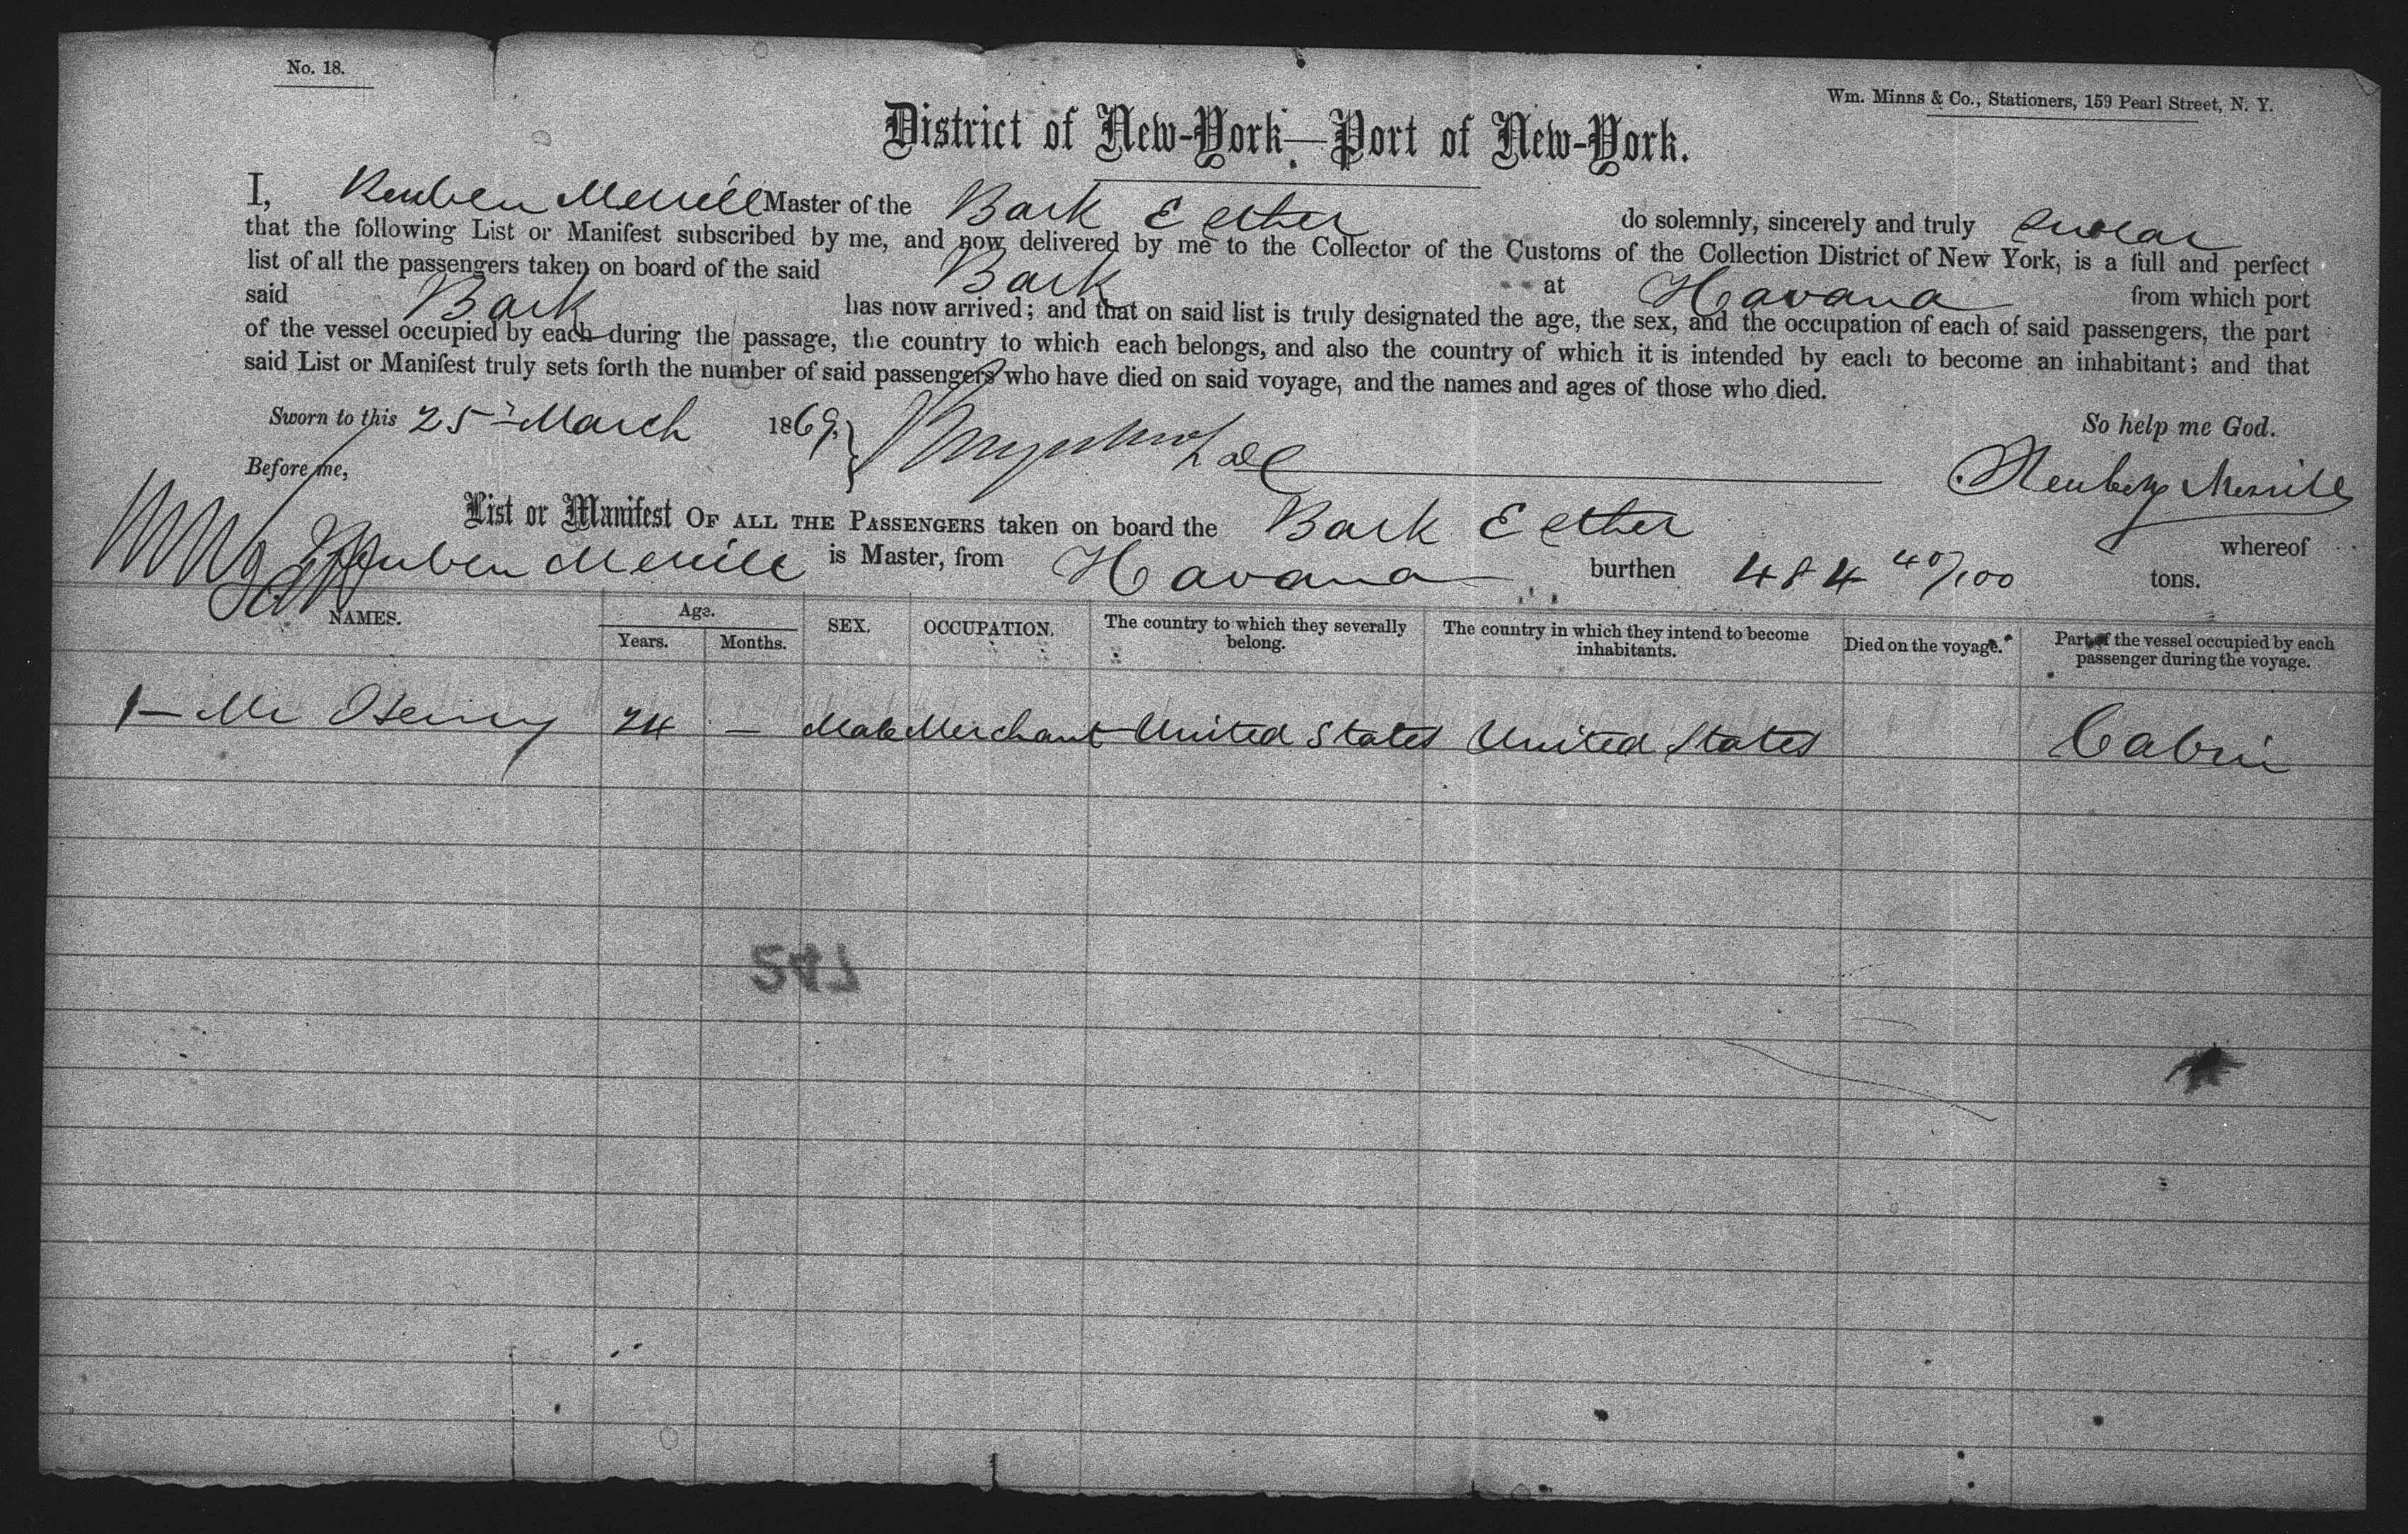 No. 18.
Wm. Minns & Co., Stationers, 159 Pearl Street, N. Y.
District of New-York—Port of New-York.
I, Reuben Merrill Master of the Bark Esther do solemnly, sincerely and truly swear
that the following List or Manifest subscribed by me, and now delivered by me to the Collector of the Customs of the Collection District of New York, is a full and perfect
list of all the passengers taken on board of the said Bark at Havana from which port
said Bark has now arrived; and that on said list is truly designated the age, the sex, and the occupation of each of said passengers, the part
of the vessel occupied by each during the passage, the country to which each belongs, and also the country of which it is intended by each to become an inhabitant; and that
said List or Manifest truly sets forth the number of said passengers who have died on said voyage, and the names and ages of those who died.
Sworn to this 25 March 1869.
So help me God.
Before me,
Reuben Merrill
List or Manifest OF ALL THE PASSENGERS taken on board the Bark Esther whereof
Reuben Merrill is Master, from Havana burthen 484 40/100 tons.
NAMES. Age. Years. Months. SEX. OCCUPATION. The country to which they severally belong. The country in which they intend to become inhabitants. Died on the voyage. Part of the vessel occupied by each passenger during the voyage.
1 — Mr Henry 24 — Male Merchant United States United States Cabin